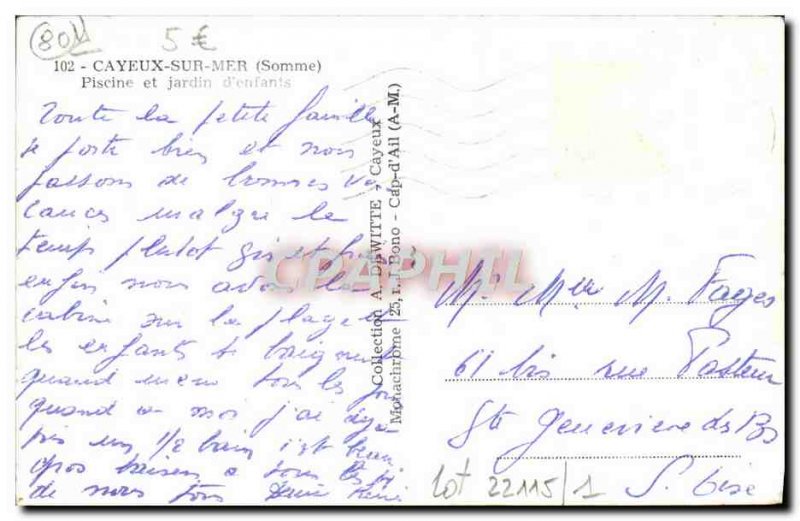 (80)
5 €
102 - CAYEUX-SUR-MER (Somme)
Piscine et jardin d'enfants
Toute la petite famille
se porte bien et nous
passons de bonnes va
cances malgre le
temps plutot gris et
enfin nous avons la
cabine sur la plage et
les enfants se baignent
quand meme tous les jours
quand a moi j'ai deja
pris un 1/2 bain c'est beau
gros baisers a tous les
de nous tous
Collection A. DEWITTE - Cayeux
Monachrome 125, r. J. Bono - Cap-d'Ail (A.-M.)
CPAPHIL
Mr Mer M. Fages
61 bis rue Pasteur
Ste Genevieve des Bs
S. Oise
lot 22115/1